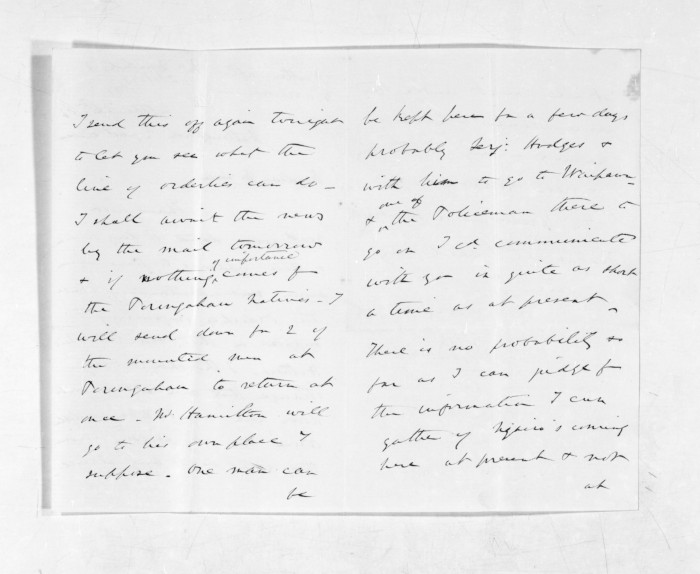 I send this off again tonight
to let you see what the
line of orderlies can do -
I shall await the news
by the mail tomorrow
of importance
& if nothing comes fr
the Porangahau Natives - I
will send down for 2 of
the mounted men at
Porangahau to return at
once - Mr Hamilton will
go to his own place I
suppose. One man can
be
be kept here for a few days
probably Serj: Hodges &
with him to go to Waipawa
one of
& the Policeman there to
go on I cd. communicate
with you in quite as short
a time as at present -
There is no probability so
far as I can judge fr
the information I can
gather of Ngairo's coming
here at present & not
at